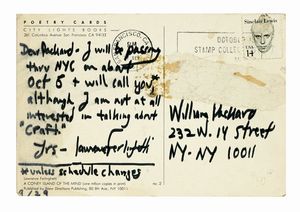 POETRY CARDS
CITY LIGHTS BOOKS
261 Columbus Avenue San Francisco, CA 94133
SAN FRANCISCO, CA
OCTOBER
STAMP COLLEC
Sinclair Lewis
USA 14
Dear Packard - I will * passing
thru NYC on about
Oct 5 & will call you*
although I am not at all
interested in talking about
"Craft"
Yrs - Lawrence Ferlinghetti
*unless schedule changes
William Packard
232 W. 14 Street
NY - NY 10011
Lawrence Ferlinghetti
A CONEY ISLAND OF THE MIND (one million copies in print)
no. 2
Published by New Directions Publishing, 80 8th Ave., NYC 10011
9/29